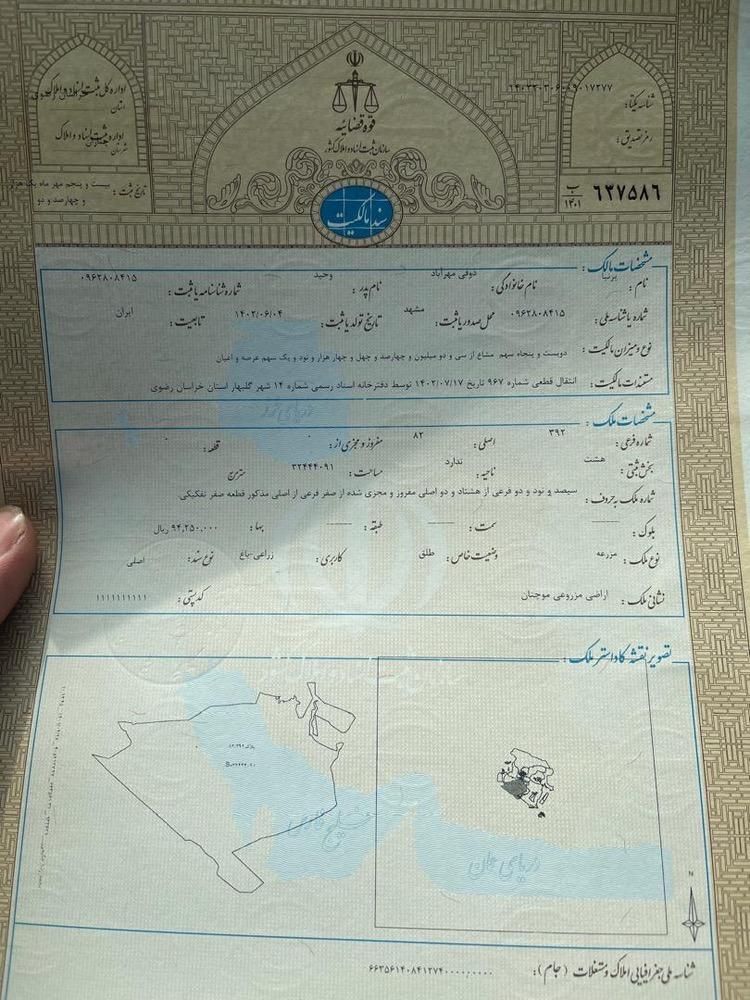 قوه قضائیه
سازمان ثبت اسناد و املاک کشور
اداره کل ثبت اسناد و املاک
استان
اداره ثبت اسناد و املاک
تاریخ ثبت :
بیست و پنجم مهر ماه یک هزار
و چهارصد و دو
شناسه یکتا:
رمز تصدیق:
۶۳۷۵۸۶ ب ۱۴۰۱
سند مالکیت
مشخصات مالک :
نام : پرنیا نام خانوادگی : ذوقی مهرآباد نام پدر : وحید شماره شناسنامه یا ثبت : ۰۹۶۲۸۰۸۴۱۵
شماره یا شناسه ملی : ۰۹۶۲۸۰۸۴۱۵ محل صدور یا ثبت : مشهد تاریخ تولد یا ثبت : ۱۴۰۲/۰۶/۰۴ تابعیت : ایران
نوع و میزان مالکیت : دویست و پنجاه سهم مشاع از سی و دو میلیون و چهارصد و چهل و چهار هزار و نود و یک سهم عرصه و اعیان
مستندات مالکیت : انتقال قطعی شماره ۹۶۷ تاریخ ۱۴۰۲/۰۷/۱۷ توسط دفترخانه اسناد رسمی شماره ۱۴ شهر گلبهار استان خراسان رضوی
مشخصات ملک :
شماره فرعی : ۳۹۲ اصلی : ۸۲ مفروز و مجزی از : ۰ قطعه : ۰
بخش ثبتی : هشت ناحیه : ندارد مساحت : ۳۲۴۴۴۰۹۱ مترمربع
شماره ملک به حروف : سیصد و نود و دو فرعی از هشتاد و دو اصلی مفروز و مجزی شده از صفر فرعی از اصلی مذکور قطعه صفر تفکیکی
بلوک : سمت : طبقه : بها : ۹۴,۲۵۰,۰۰۰ ریال
نوع ملک : مزرعه وضعیت خاص : طلق کاربری : زراعی-باغ نوع سند : اصلی
نشانی ملک : اراضی مزروعی موچنان کد پستی : ۱۱۱۱۱۱۱۱۱۱
تصویر نقشه کاداستر ملک :
دریای خزر
خلیج فارس
دریای عمان
N
شناسه ملی جغرافیایی املاک و مستغلات (جام) :